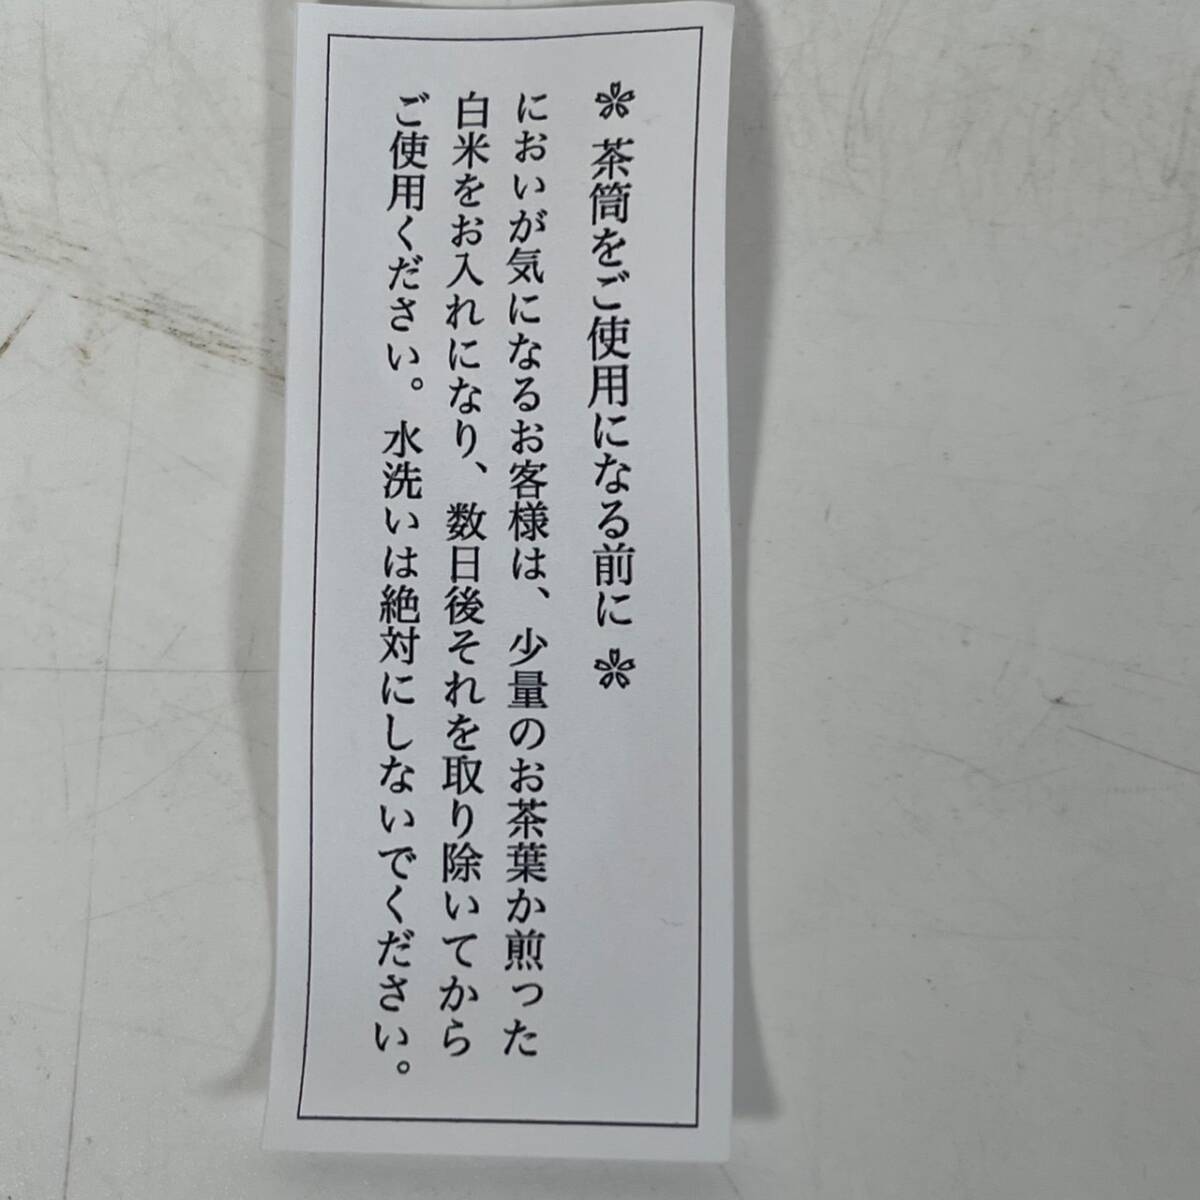 ❀ 茶筒をご使用になる前に ❀
においが気になるお客様は、少量のお茶葉か煎った
白米をお入れになり、数日後それを取り除いてから
ご使用ください。水洗いは絶対にしないでください。